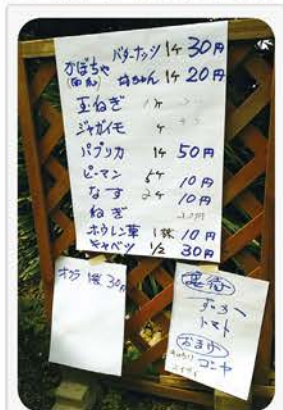 バターナッツ 1ケ 30円
かぼちゃ 坊ちゃん 1ケ 20円
玉ねぎ
ジャガイモ ケ
パプリカ 1ケ 50円
ピーマン 5ケ 10円
なす 2ケ 10円
ねぎ
ホウレン草 1株 10円
キャベツ 1/2 30円
オクラ 1袋 30円
トマト
おまけ